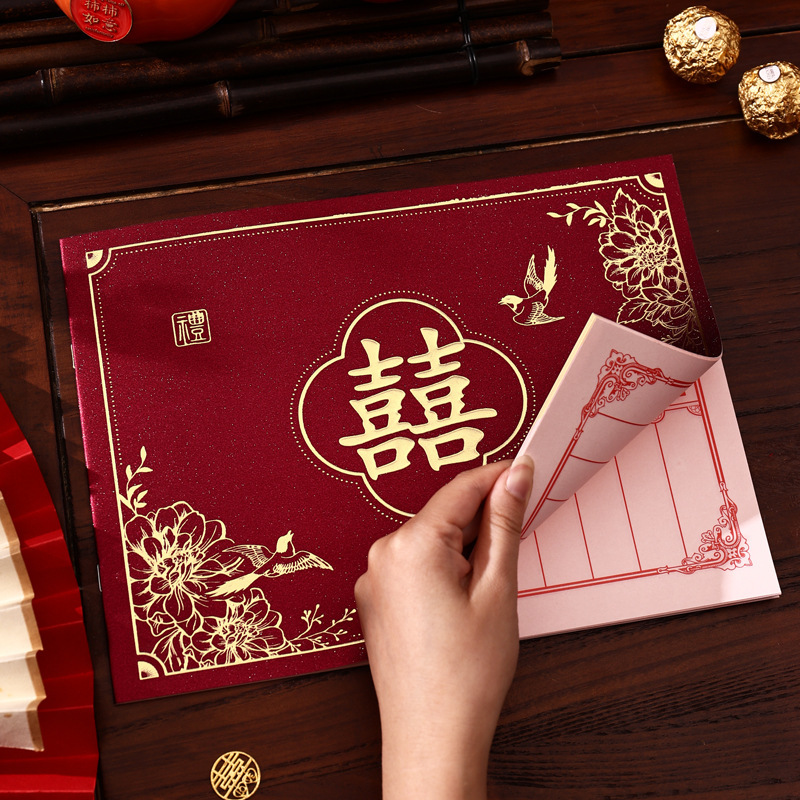 柿柿
如意
禮
囍
囍